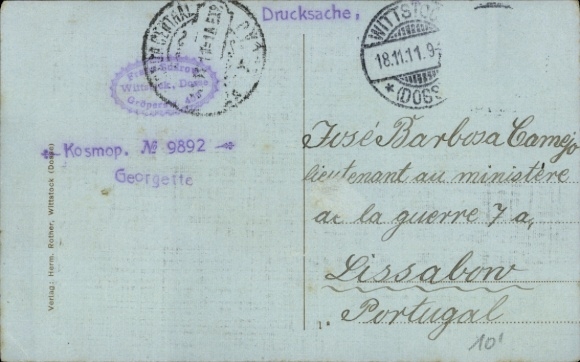 Drucksache.
WITTSTOCK
18.11.11.9-
*(DOSSE)
CENTRAL
Wittstock, Dosse
Kosmop. № 9892
Georgette
José Barbosa Camejo
lieutenant au ministère
de la guerre 7 a,
Lissabon
Portugal
1.
10'
Verlag: Herm. Rother, Wittstock (Dosse)